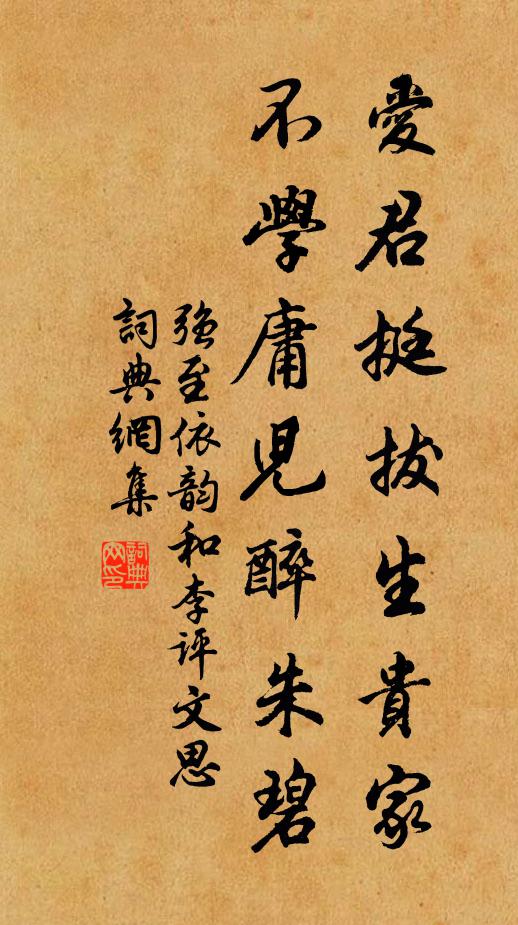 愛君挺拔生貴家
不學庸兒醉朱碧
強至依韵和李評文思
詞典網集
詞典网印